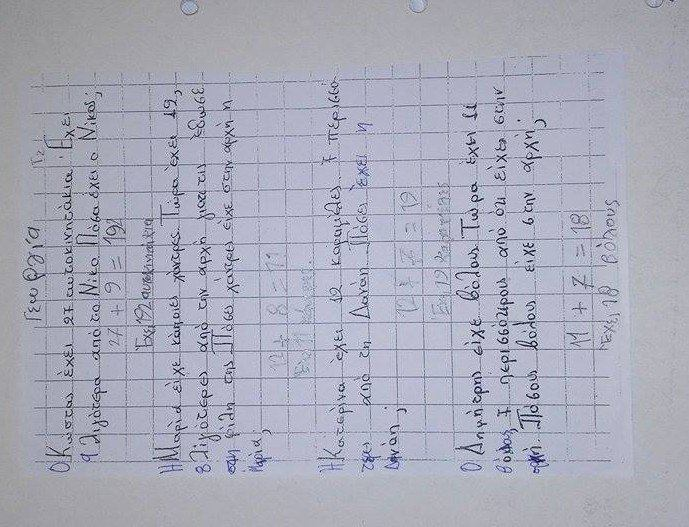 Γεωργία Γ2
Ο Κώστας έχει 27 αυτοκινητάκια. Έχει
9 λιγότερα από το Νίκο. Πόσα έχει ο Νίκος;
27 + 9 = 192
Έχει 192 αυτοκινητάκια
Η Μαρία είχε κάποιες χάντρες. Τώρα έχει 19,
8 λιγότερες από την αρχή γιατί τις έδωσε
στη φίλη της. Πόσες χάντρες είχε στην αρχή η
Μαρία;
+ 8 = 11
Έχει 11
Η Κατερίνα έχει 12 καραμέλες, 7 περισσό-
τερες από τη Δανάη. Πόσες έχει η
Δανάη;
12 + 7 = 19
Έχει 19 καραμέλες
Ο Δημήτρης είχε βόλους. Τώρα έχει 11
βόλους, 7 περισσότερους από ότι είχε στην
αρχή. Πόσους βόλους είχε στην αρχή;
11 + 7 = 18
Έχει 18 βόλους